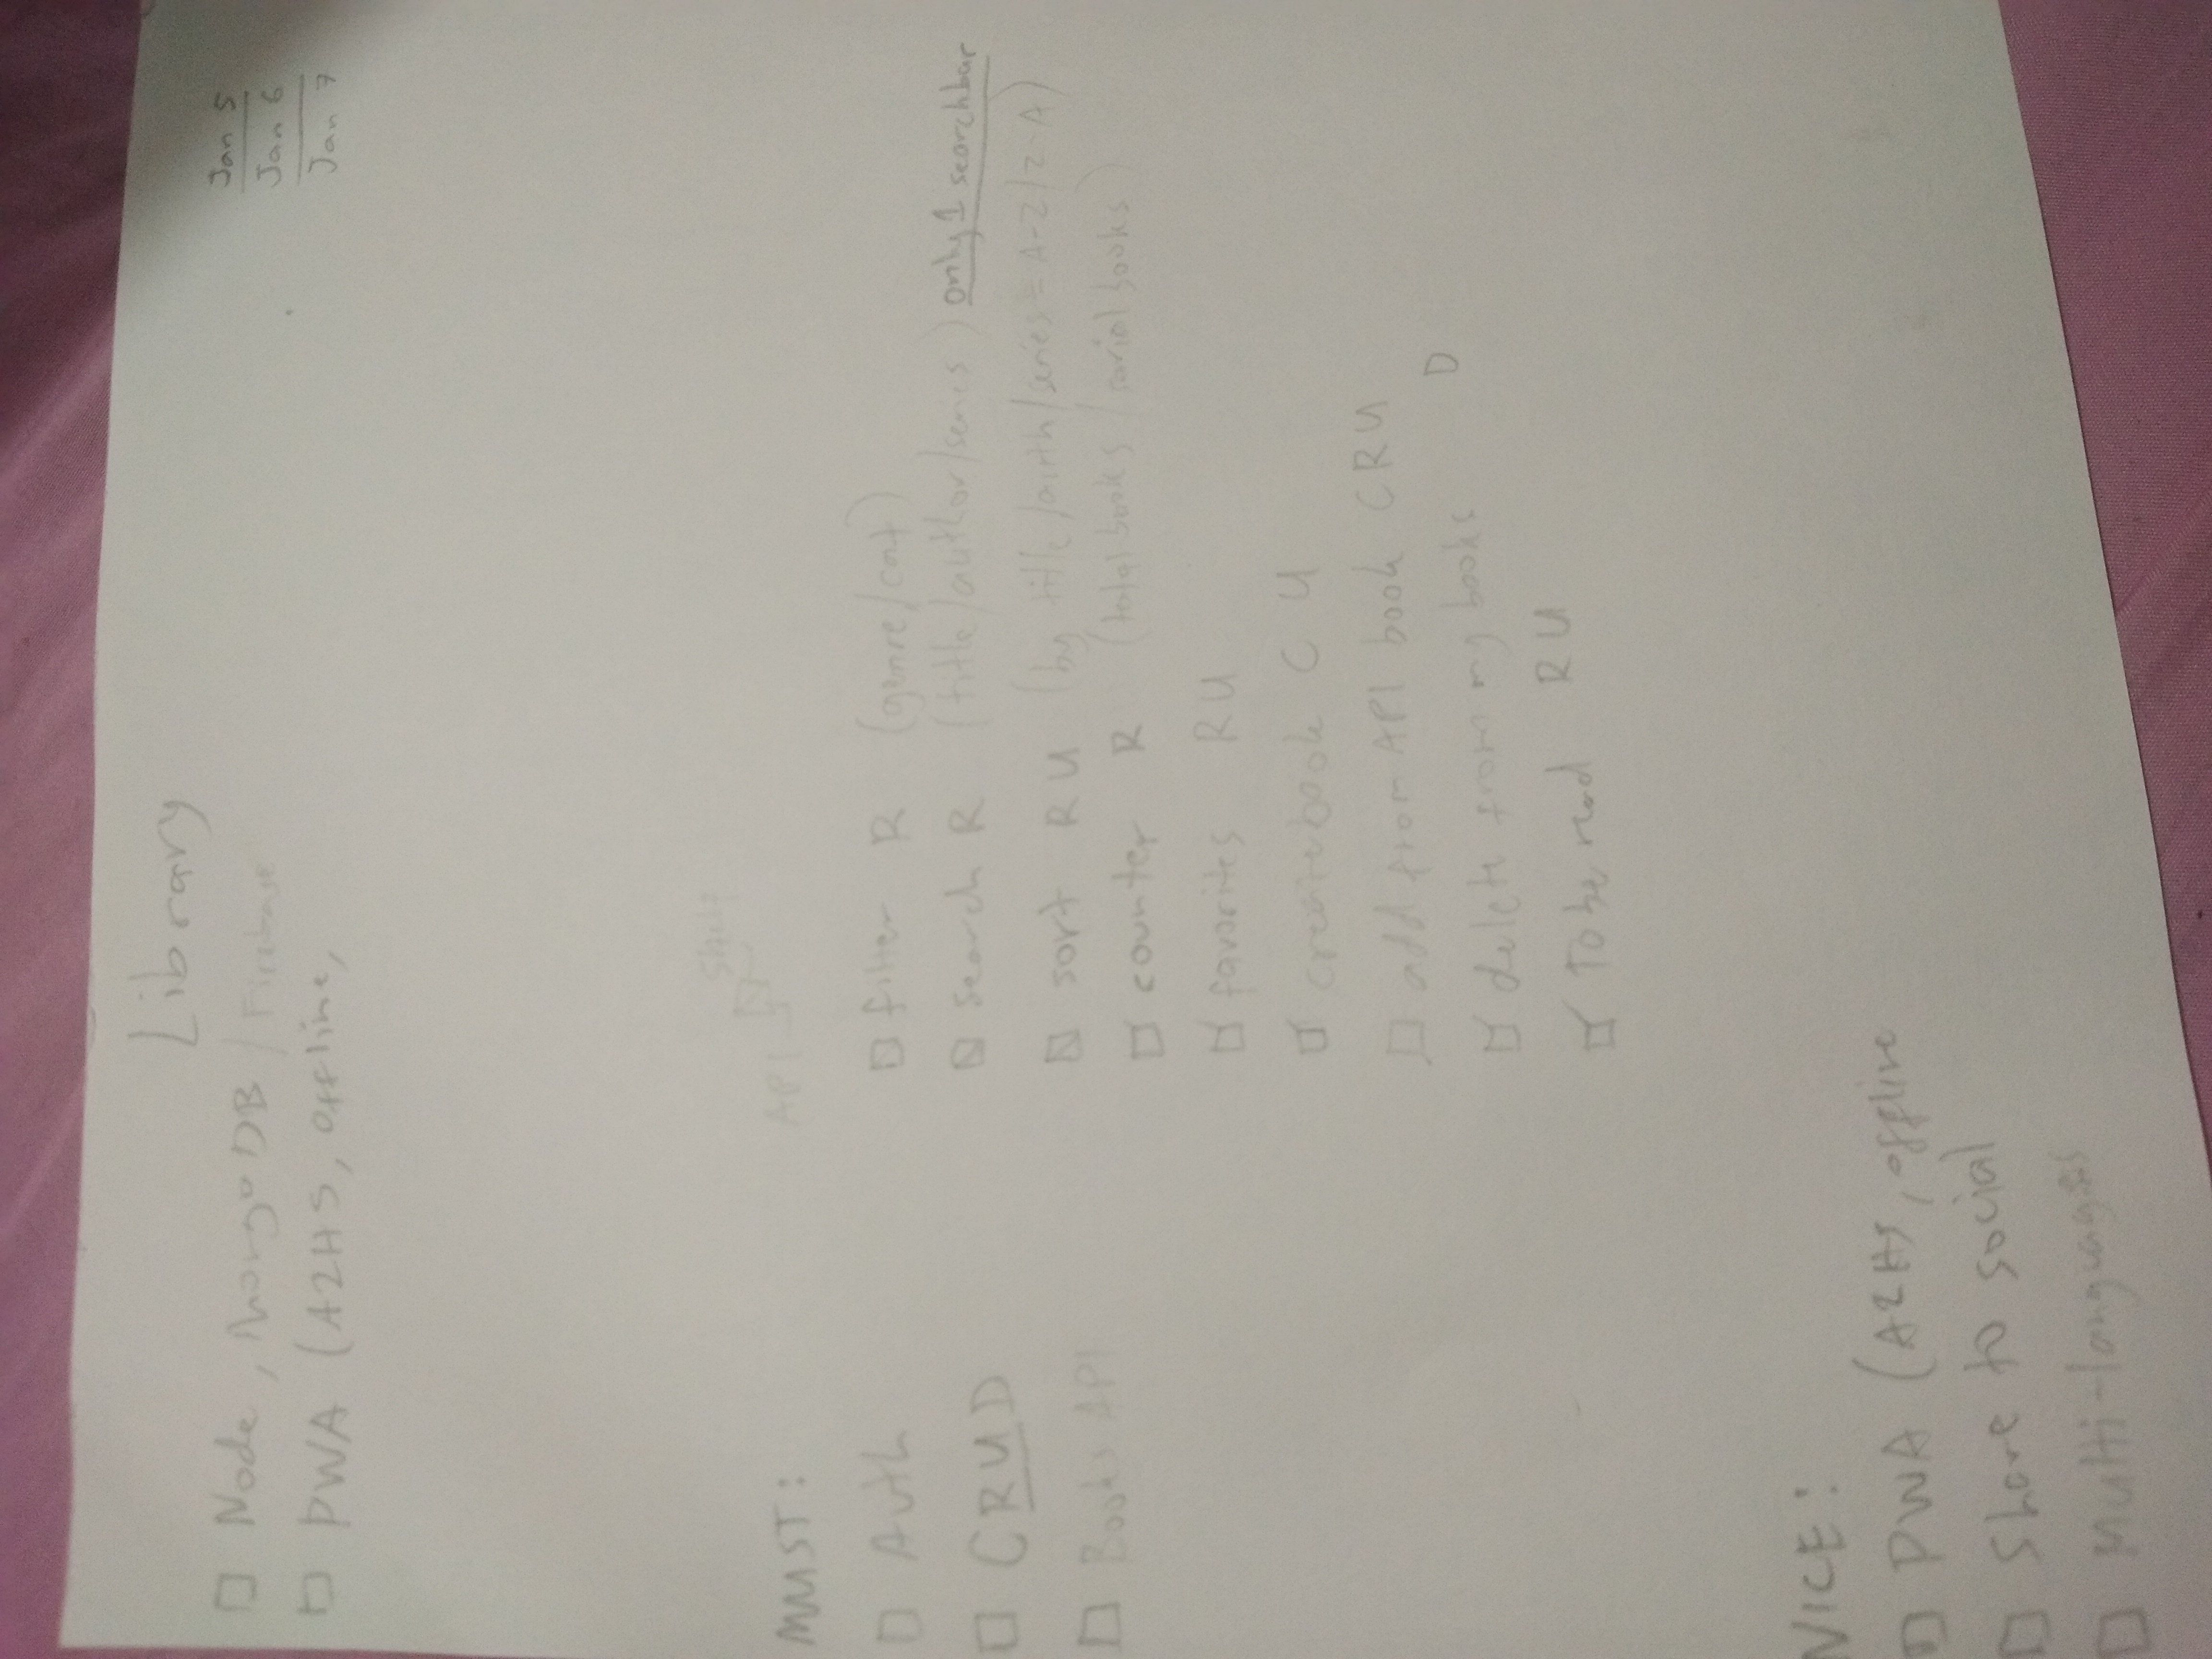 Library
Jan 5
Jan 6
Jan 7
□ Node, MongoDB / Firebase
□ PWA (A2HS, offline,
API
MUST:
□ Auth
□ CRUD
□ Books API
☑ filter R (genre/cat)
☑ search R (title/author/series) only 1 searchbar
☑ sort R U (by title/auth/series = A-Z/Z-A)
☑ counter R (total books / serial books)
☑ favorites R U
☑ create book C U
□ add from API book C R U
☑ delete from my books D
☑ To be read R U
NICE:
□ PWA (A2HS, offline
□ Share to social
□ Multi-languages